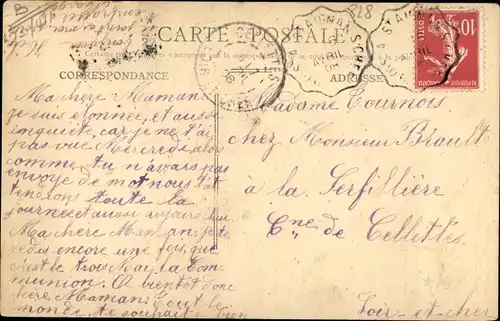 CARTE POSTALE
CORRESPONDANCE
ADRESSE
Ma chère Maman
je suis étonnée, et aussi
inquiète, car je ne t'ai
pas vue Mercredi, alors
comme tu n'avais pas
envoyé de mot nous t'at
tendions toute la
journée et aussi
Ma chère Maman, je te
redis encore une fois, que
c'est le trois Mai, la Com
munion. A bientôt donc
chère Maman. Tout le
monde te souhait
Madame Tournois
chez Monsieur Brault
à la Serfillière
Cne de Cellettes
Loir-et-Cher
828
10
POSTES